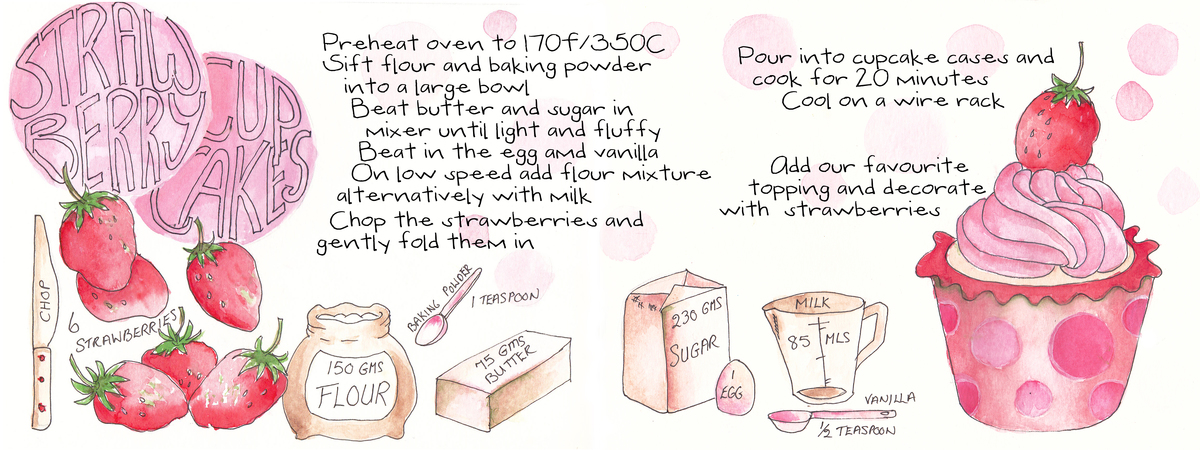 STRAW
BERRY
CUP
CAKES
Preheat oven to 170f/350C
Sift flour and baking powder
into a large bowl
Beat butter and sugar in
mixer until light and fluffy
Beat in the egg amd vanilla
On low speed add flour mixture
alternatively with milk
Chop the strawberries and
gently fold them in
CHOP
6
STRAWBERRIES
150 GMS
FLOUR
BAKING POWDER
1 TEASPOON
75 GMS
BUTTER
Pour into cupcake cases and
cook for 20 minutes
Cool on a wire rack
Add our favourite
topping and decorate
with strawberries
230 GMS
SUGAR
1
EGG
MILK
85 MLS
VANILLA
1/2 TEASPOON